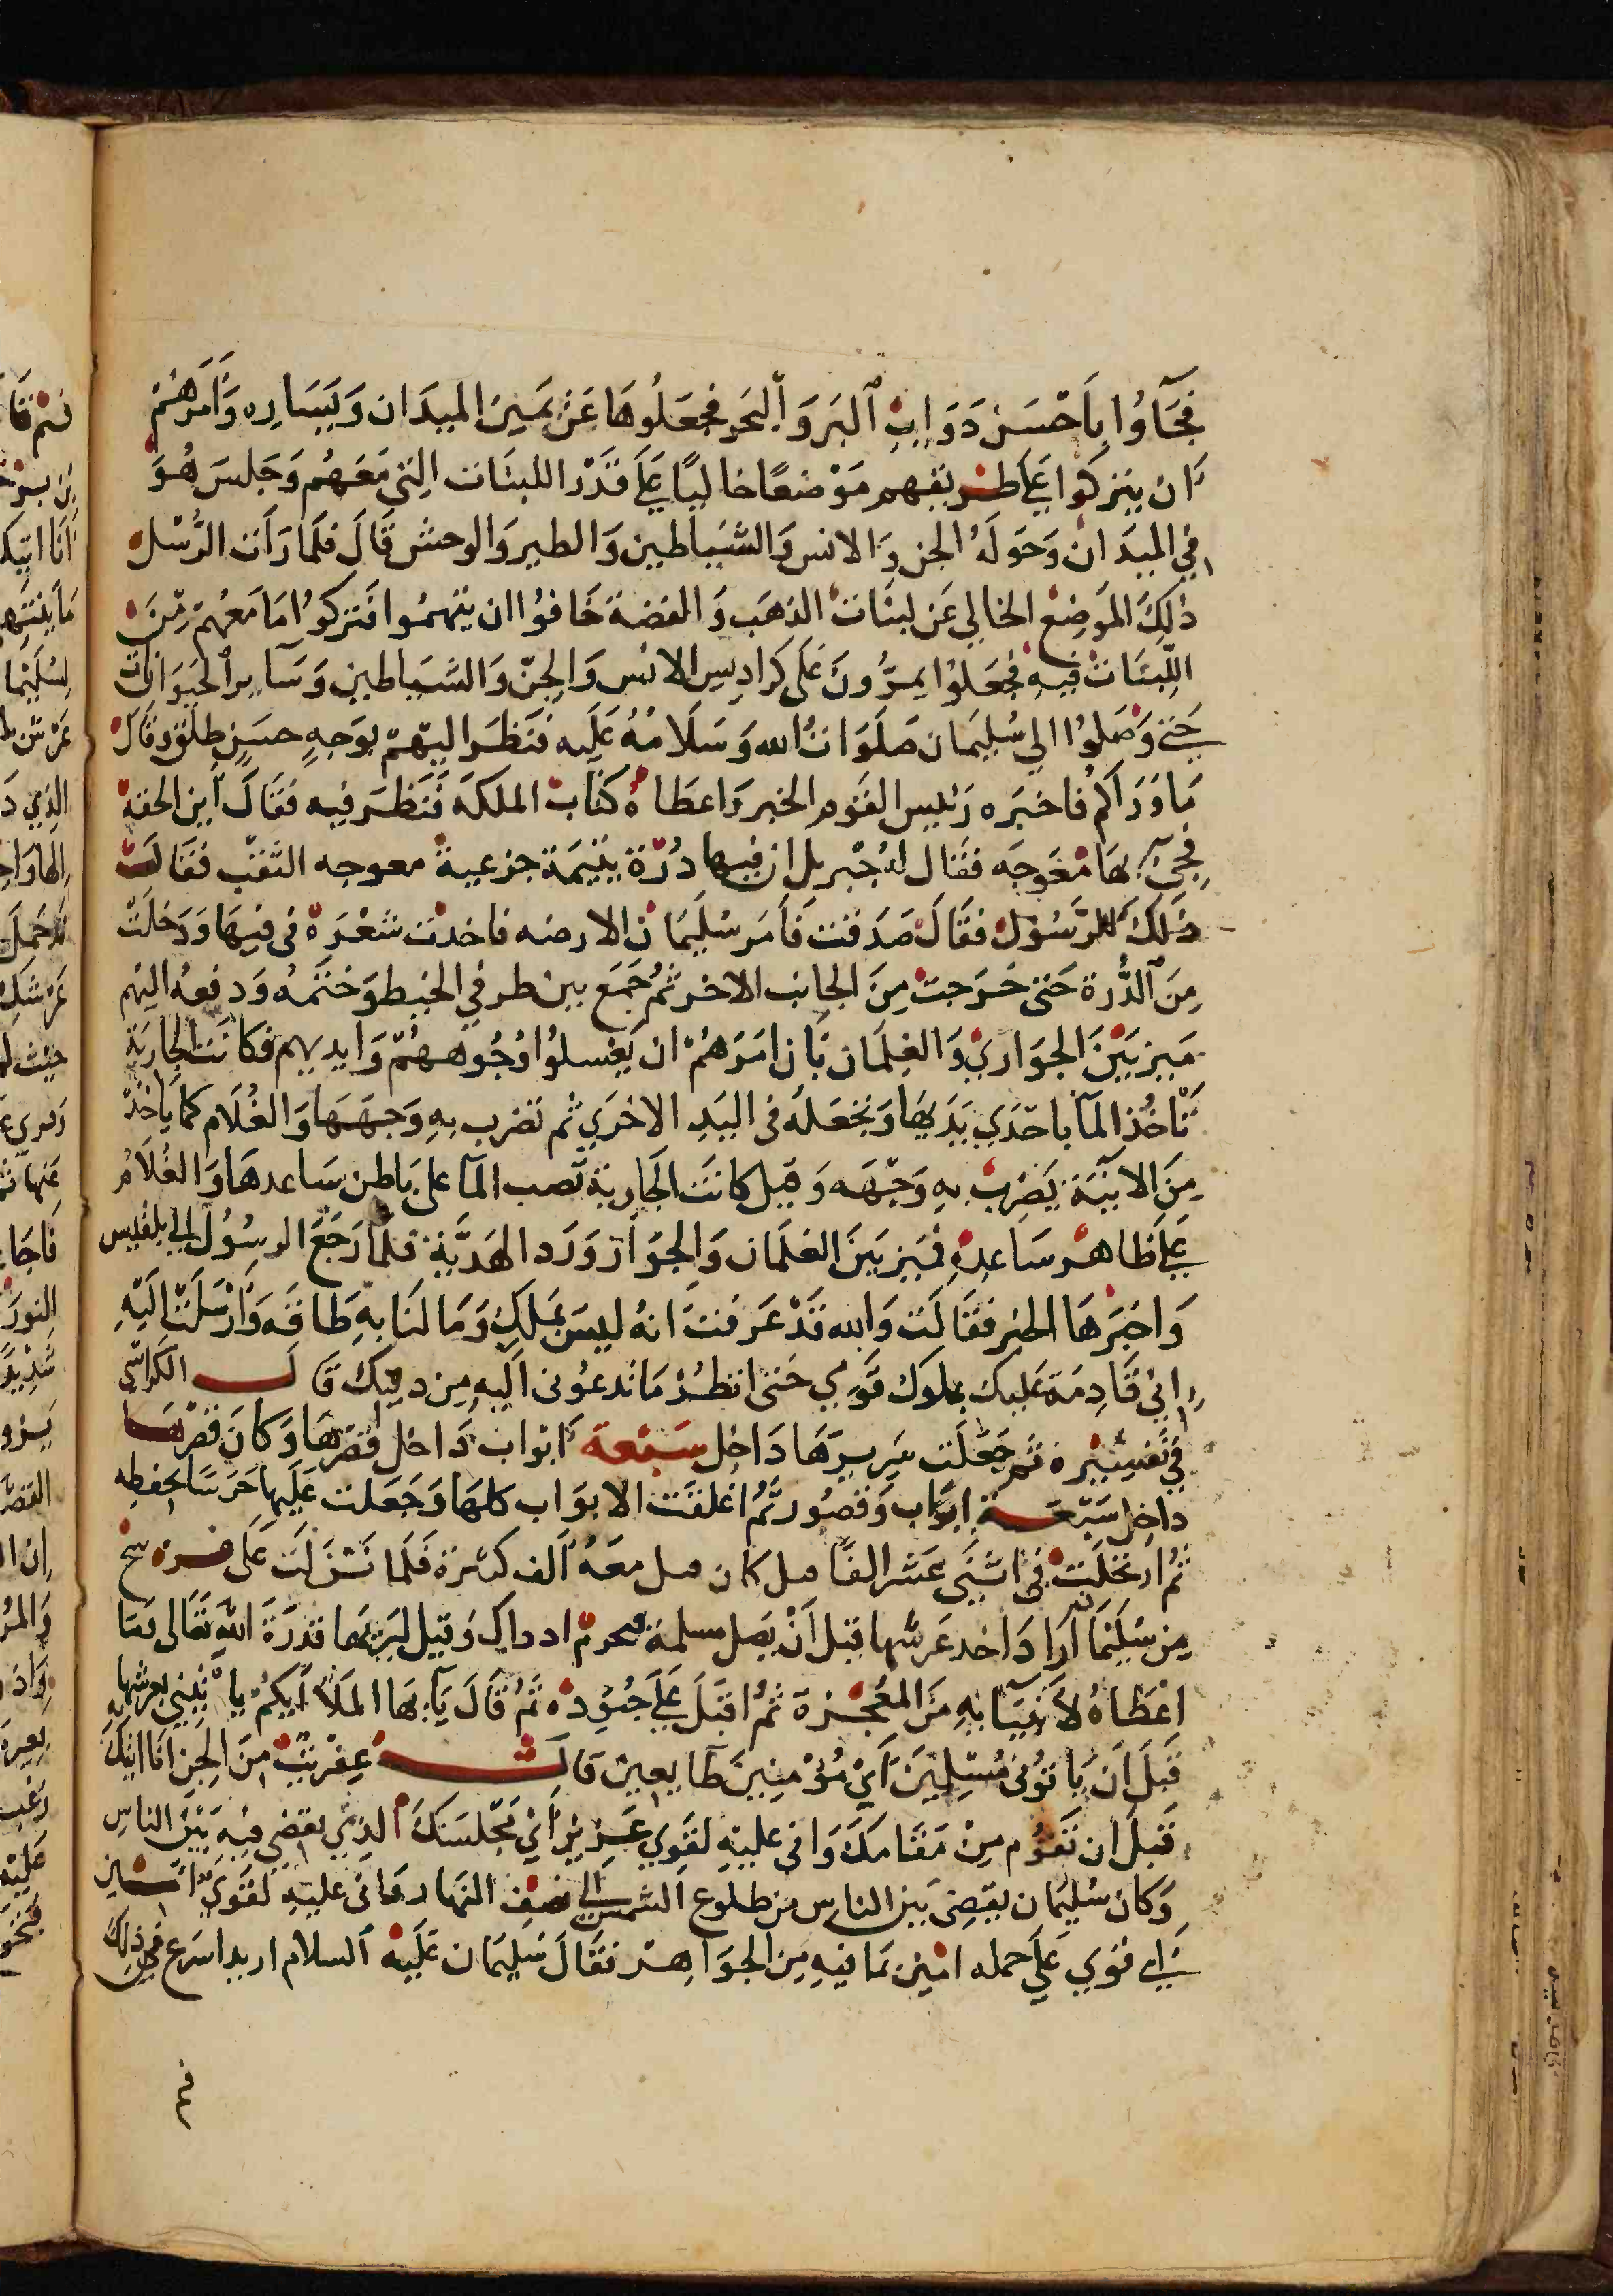 فَجَآوُا بِاَحْسَن دَوَابِ اَلبَر وَاَلبَحر فجعَلُوهَا عَن يَمينَ الميدَان وَيَسَاره وَاَمَرهُمْ
اَن يتركوا عَلَى طريقهم مَوْضعًا خاليًا عَلَى قَدْر اللبنَات التي مَعَهُم وَجَلسَ هُوَ
في الميدَان وَحَولَهُ الجن وَالانس وَالشيَاطين وَالطير وَالوحش قَالَ فلَما رَأت الرُسْل
ذلكَ الموَضِع الخالي عَن لبنَات الذهَب وَالفضة خَافوُا ان يتهمُوا فتركوُا مَا مَعهُمْ مّنَ
اللّبنَات فيهِ فجُعَلوُا يمرُّونَ عَلَى كرادِيس الانس وَالجنّ وَالشيَاطين وَسَآير الحيَوَانات
حَتي وَصَلوُا الي سُليمَان صَلَوَاتُ الله وَسَلَامُهُ عَلَيه فنَظرَ اليهمْ بوَجهٍ حسَنٍ طلق وقَالَ
مَا وَرَآكمُ فاخبَره رَئيس القَوم الخبر وَاعطَاهُ كتَابْ الملكَة فَنَظرَ فيه فقَالَ اين الحقة
فجِيَ بهَا مغوجَه فقَال لهُ جبْريل ان فيها دُرّة يتيمَة جزعية معوجه الثقب فقَالت
ذلَكَ للرّسُول فقَالَ صَدَقت فَاَمَر سُليمَان الارضه فاخذت شعْرَة في فيهَا وَدَخلَتْ
مِنَ الدُّرة حَتى خرَجت مِنَ الجانب الاخر ثُم جَمَع بين طرفي الخيط وَختمهُ وَدفعهُ اليهم
مَيز بَيْنَ الجوَاريْ وَالغلمَان بَان امَرهُمْ ان يَغسلوُا وُجُوههُمّ وَايديهم فكَانَت الجاريَة
تَاْخُذ المَآ باحدَي يَدَيهَا وَتجعَلهُ في اليَدِ الاخرَي ثم تضرب بهِ وَجههَا وَالغُلَام كما يَاخذْ
مِنَ الانيَة يَضرِبْ بهِ وَجْهَه وَقيل كانتَ الجَارية تَصب المآ على بَاطن سَاعدهَا وَالغُلاَمُ
عَلَي ظَاهر سَاعدهِ فميَز بَينَ الغلمَان وَالجوَاَر وَرَد الهدَيّة فلمَا رَجَعَ الرسُوُل الي بلقيس
وَاخبَرهَا الخبر فقَالَت وَالله قَدْ عَرَفت اَنهُ ليسَ بمَلكِ وَمَا لنَا بهِ طَاقه وَاَرْسَلَتْ اليْهِ
اني قَادِمَة عَليك بملوك قَومي حَتي انظُر مَا تدعوُني اليهِ مِن دينِك قَالَ الكوَاشي
في تَفسِيْره ثمَ جَعَلت سَريرهَا دَاخِل سَبْعَة ابْوَاب دَاخل قصْرهَا وَكانَ قصْرهَا
داخِل سَبْعَة ابوَاب وَقصُور ثُم اغلقَت الابوَاب كلهَا وَجَعَلت عَليهَا حَرَسًا يحفظه
ثُم ارتحَلَت في اثنَي عَشر الفًا قيل كان قيل معَهُ اَلف كثيرة فَلَما نَزَلَت عَلى فرسخ
مِن سُليْمَا اَرَاد اخد عَرشها قبل اَنْ يَصل مسلمة فيحرم ادداك وَقيل ليَريهَا قدْرَة الله تعَالى وَمَا
اعْطَاهُ لاَنبيَآيهِ مَن المعُجزة ثُم اقبَل عَلَي جُنوُدهْ ثُم قَالَ يَآيهَا المَلَا اَيكمُ يَاْتيْني بعَرْشها
قَبلَ اَن يَاتوُني مُسْلِميْنَ اَيْ مُؤْمِنينَ طَآيعين قَالَت عِفريتُ مِنَ الجن اَنَا اتيكَ بهِ
قَبلَ ان تَقوُم مِنْ مَقَامكَ وَاني عَليْهِ لقَوي عَزيْز اَيْ مَجْلسَكَ الذِي تقضي فيْهِ بَيْنَ الناسِ
وَكان سُليمَان يقضي بَين الناس من طلوع الشمس الي نصف النهار وَاني عليهِ لقَوَي امين
اي قوَي عَلي حمله امين بمَا فيهِ مِن الجوَاهر فقَالَ سُليمَان عَلَيه السلام اريد اسرَع من ذلِك
فم